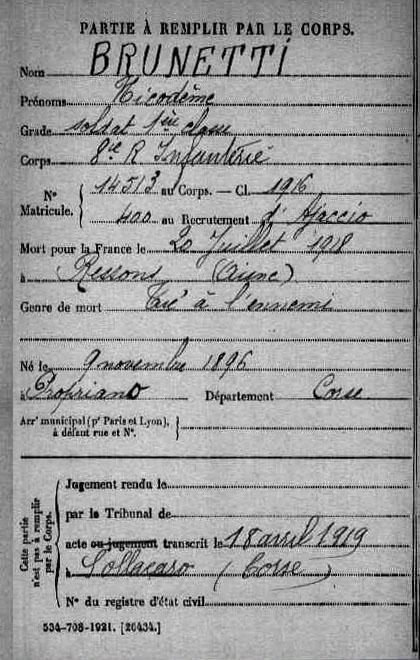 PARTIE À REMPLIR PAR LE CORPS.
Nom BRUNETTI
Prénoms Nicodème
Grade soldat 1ère classe
Corps 8ie R Infanterie
No Matricule. 14513 au Corps. — Cl. 1916
400 au Recrutement d'Ajaccio
Mort pour la France le 20 Juillet 1918
à Ressons (Aisne)
Genre de mort Tué à l'ennemi
Né le 9 novembre 1896
à Propriano Département Corse
Arrt municipal (pr Paris et Lyon), à défaut rue et No.
Cette partie n'est pas à remplir par le Corps.
Jugement rendu le
par le Tribunal de
acte ou jugement transcrit le 18 avril 1919
à Sollacaro (Corse)
No du registre d'état civil
534-708-1921. [26434.]